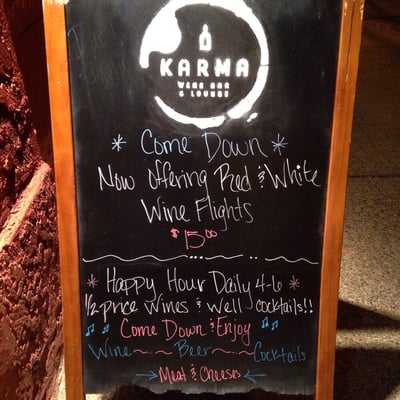 KARMA
WINE BAR
& LOUNGE
* Come Down *
Now Offering Red & White
Wine Flights
$15⁰⁰
* Happy Hour Daily 4-6 *
1/2 price Wines & Well Cocktails!!
♫ Come Down & Enjoy ♫
Wine ~ ~ Beer ~ ~ Cocktails
→ Meat & Cheeses ←